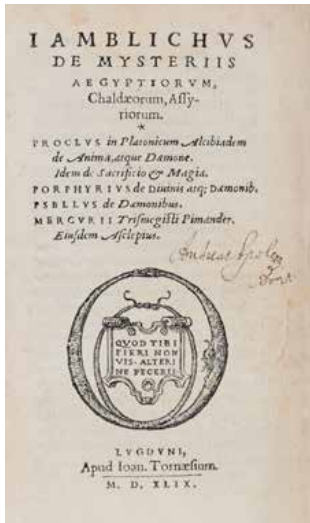 IAMBLICHVS
DE MYSTERIIS
AEGYPTIORVM,
Chaldæorum, Aſſy-
riorum.
*
PROCLVS in Platonicum Alcibiadem
de Anima, atque Dæmone.
Idem de Sacrificio & Magia.
PORPHYRIVS de Diuinis atq; Dæmonib.
PSELLVS de Dæmonibus.
MERCVRII Triſmegiſti Pimander.
Eiuſdem Aſclepius.
Andreas
QVOD TIBI
FIERI NON
VIS, ALTERI
NE FECERIS
LVGDVNI,
Apud Ioan. Tornæſium.
M. D. XLIX.